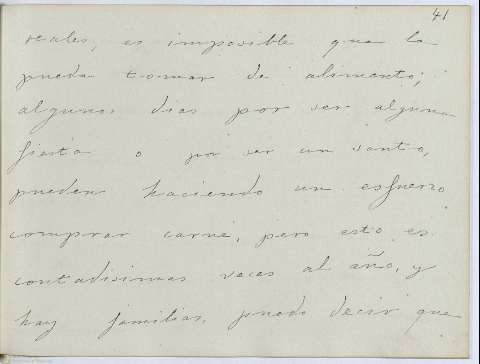 41
reales, es imposible que la
pueda tomar de alimento;
algunos dias por ser alguna
fiesta o por ser un santo,
pueden haciendo un esfuerzo
comprar carne, pero esto es
contadisimas veces al año, y
hay familias, puedo decir que